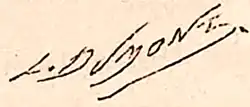 L. DUMONT